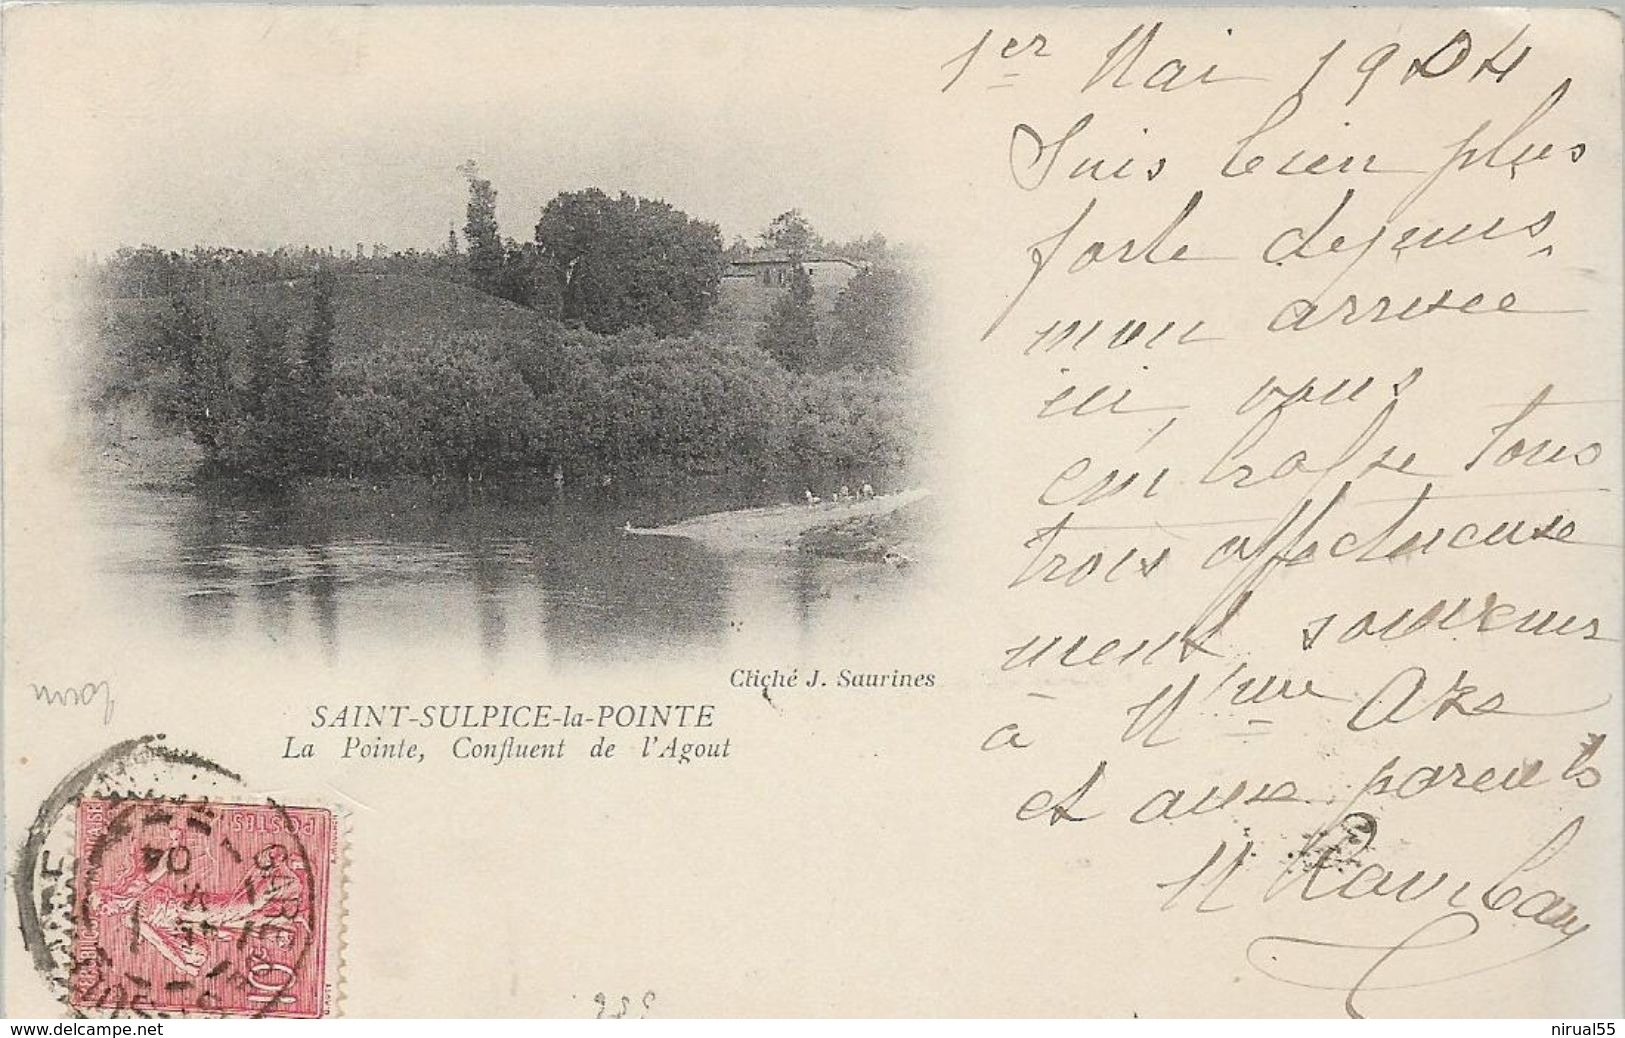 1er Mai 1904
Suis bien plus
forte depuis
mon arrivée
ici, vous
embrasse tous
trois affectueuse
ment souvenirs
à Mme
et aux parents
Cliché J. Saurines
SAINT-SULPICE-la-POINTE
La Pointe, Confluent de l'Agout
POSTES
10c
GARE
04
255
www.delcampe.net
nirual55